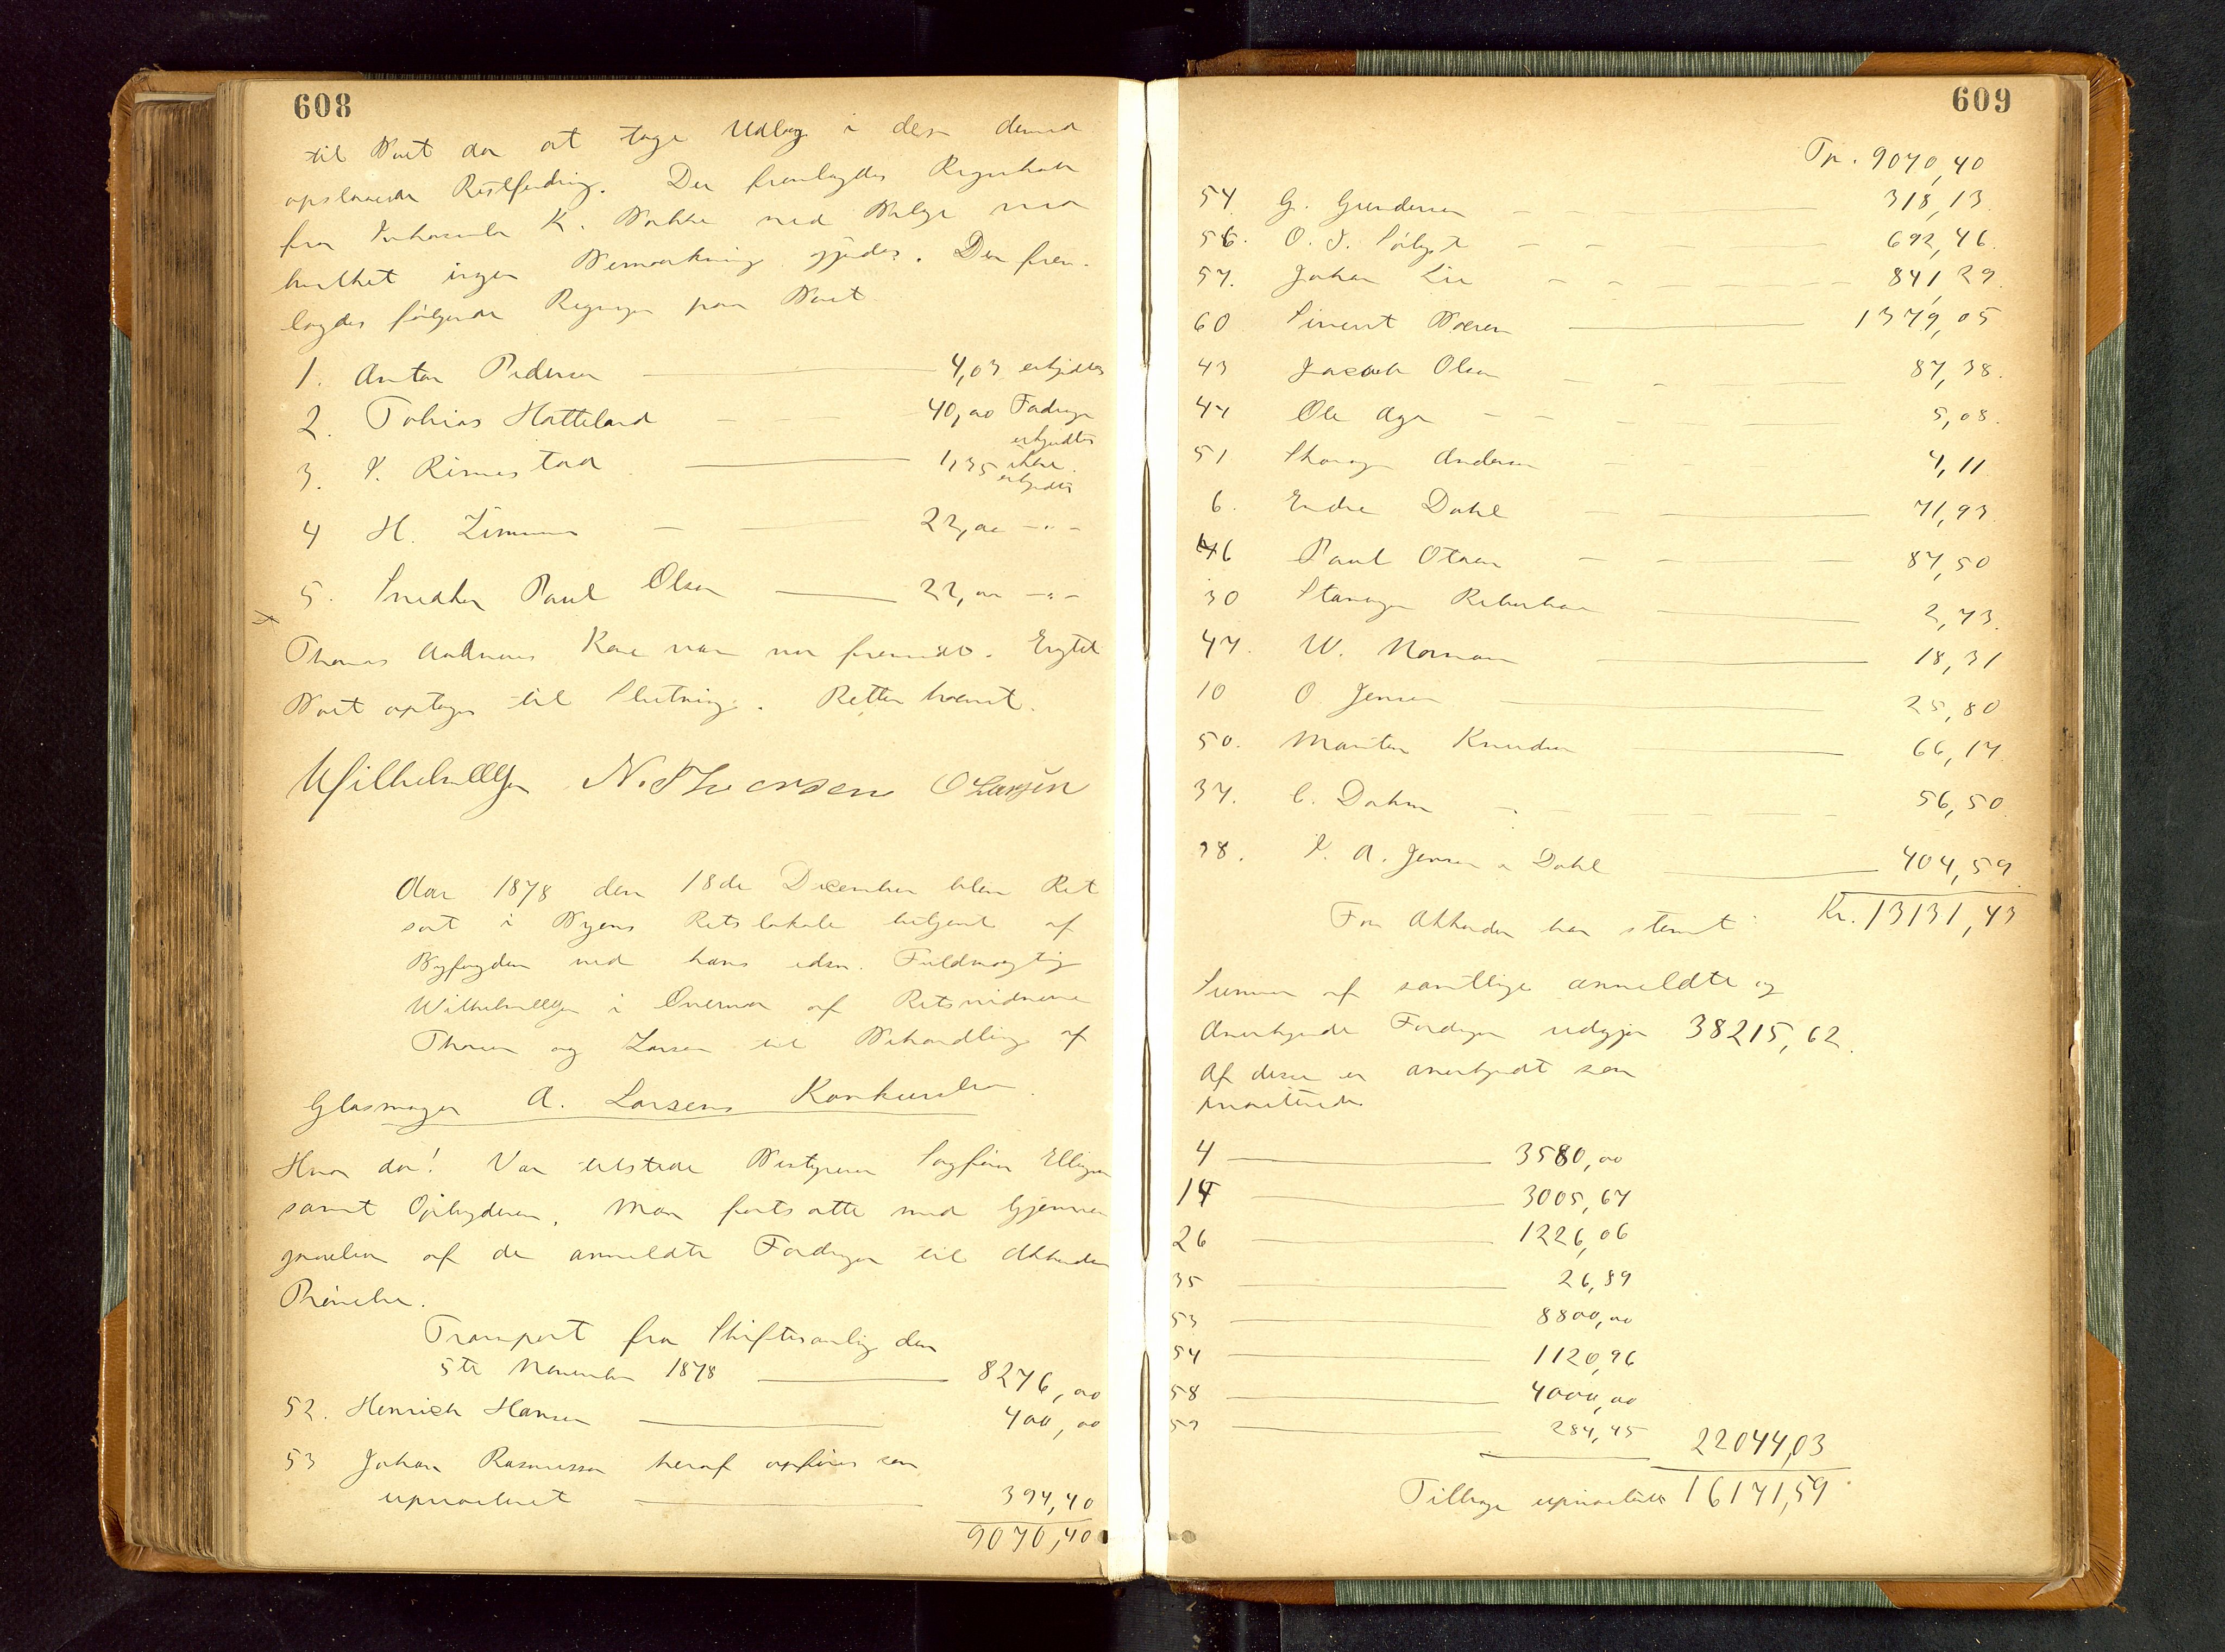 608
til Boet da at tage Udlæg i den derved
opstaaende Restfordring. Der fremlagdes Regnskab
fra Inkassator K. Bakke med Bilage mod
hvilket ingen Bemærkning gjordes. Der frem-
lagdes følgende Regninger paa Boet
1. Anton Pedersen 4,03 erkjendtes
2. Tobias Hatteland 40,00 Fordringen
erkjendtes
3. Rimestad 1,35 ikke
erkjendtes
4 H. Zimmer 22,00 -"-
5. Snedker Paul Olsen 22,00 -"-
Thomas Andreas Roe var nu fremmødt.
Boet optages til Slutning. Retten hævet.
Wilhelm Ellefsen N. Thorsen O Larsen
Aar 1878 den 18de December blev Ret
sat i Byens Retslokale betjent af
Byfogden ved hans edsv. Fuldmægtig
Wilhelm Ellefsen i Overvær af Retsvidnerne
Thorsen og Larsen til Behandling af
Glasmager A. Larsens Konkursbo
Hvor da! Var tilstede Bestyreren Sagfører Ellingsen
samt Opbyderen. Man fortsatte med Gjennem
gaaelsen af de anmeldte Fordringer til Akkorden
Prøvelse.
Transport fra Skiftesamling den
5te November 1878 8276,00
52. Henrich Hansen 400,00
53 Johan Rasmussen heraf opføres som
uprioriteret 394,40
9070,40
609
Tr. 9070,40
54. G. Gundersen 318,13
56. O. J. 692,46
57. Johan Lie 841,29
60 Sivert Boersen 1379,05
43 Jacob Olsen 87,38
44 Ole Aga 5,08
51 Andersen 4,11
6. Endre Dahl 71,93
46 Paul Ottesen 87,50
30 Stavanger Reberbane 2,73
47. W. Norman 18,31
10 O Jensen 25,80
50. Marten Knudsen 66,17
37. C. Dahm 56,50
38. A. Jensen & Dahl 404,59
For Akkorden har stemt Kr. 13131,43
Summen af samtlige anmeldte og
Anerkjendte Fordringer udgjør 38215,62
Af disse er anerkjendt som
prioriterede
4 3580,00
14 3005,67
26 1226,06
35 26,89
53 8800,00
54 1120,96
58 4000,00
59 284,45 22044,03
Tilbage uprioriteret 16171,59